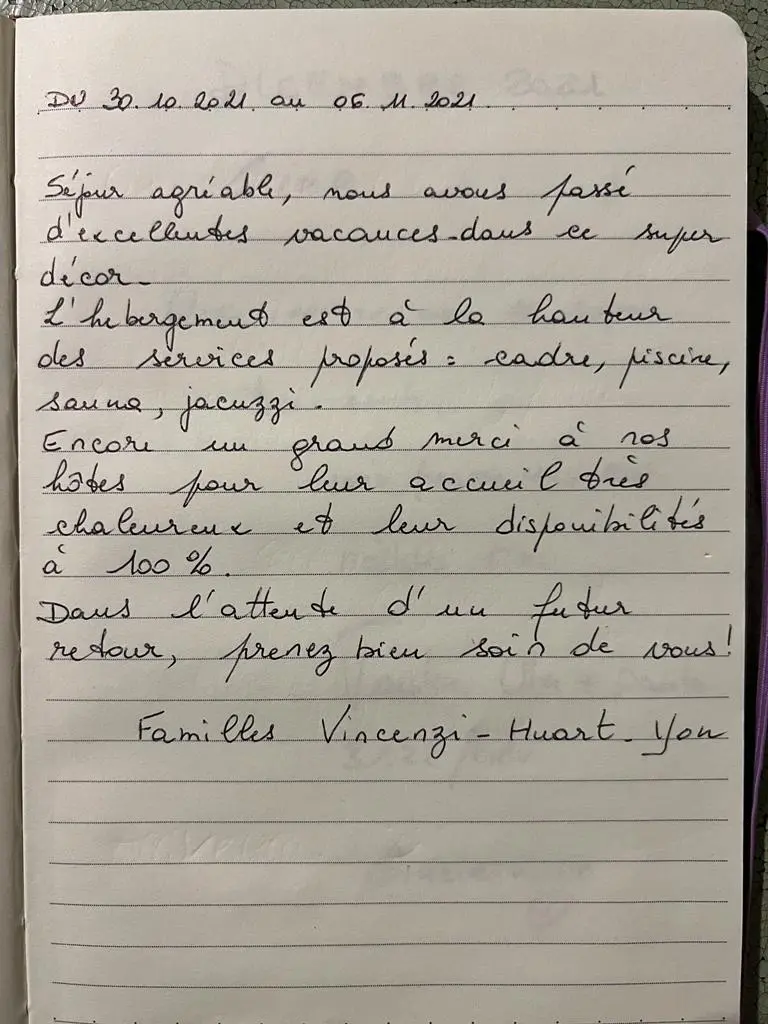 DU 30.10.2021 au 06.11.2021.
Séjour agréable, nous avons passé
d'excellentes vacances dans ce super
décor.
L'hebergement est à la hauteur
des services proposés : cadre, piscine,
sauna, jacuzzi.
Encore un grand merci à nos
hôtes pour leur accueil très
chaleureux et leur disponibilités
à 100 %.
Dans l'attente d'un futur
retour, prenez bien soin de vous !
Familles Vincenzi - Huart - Yon